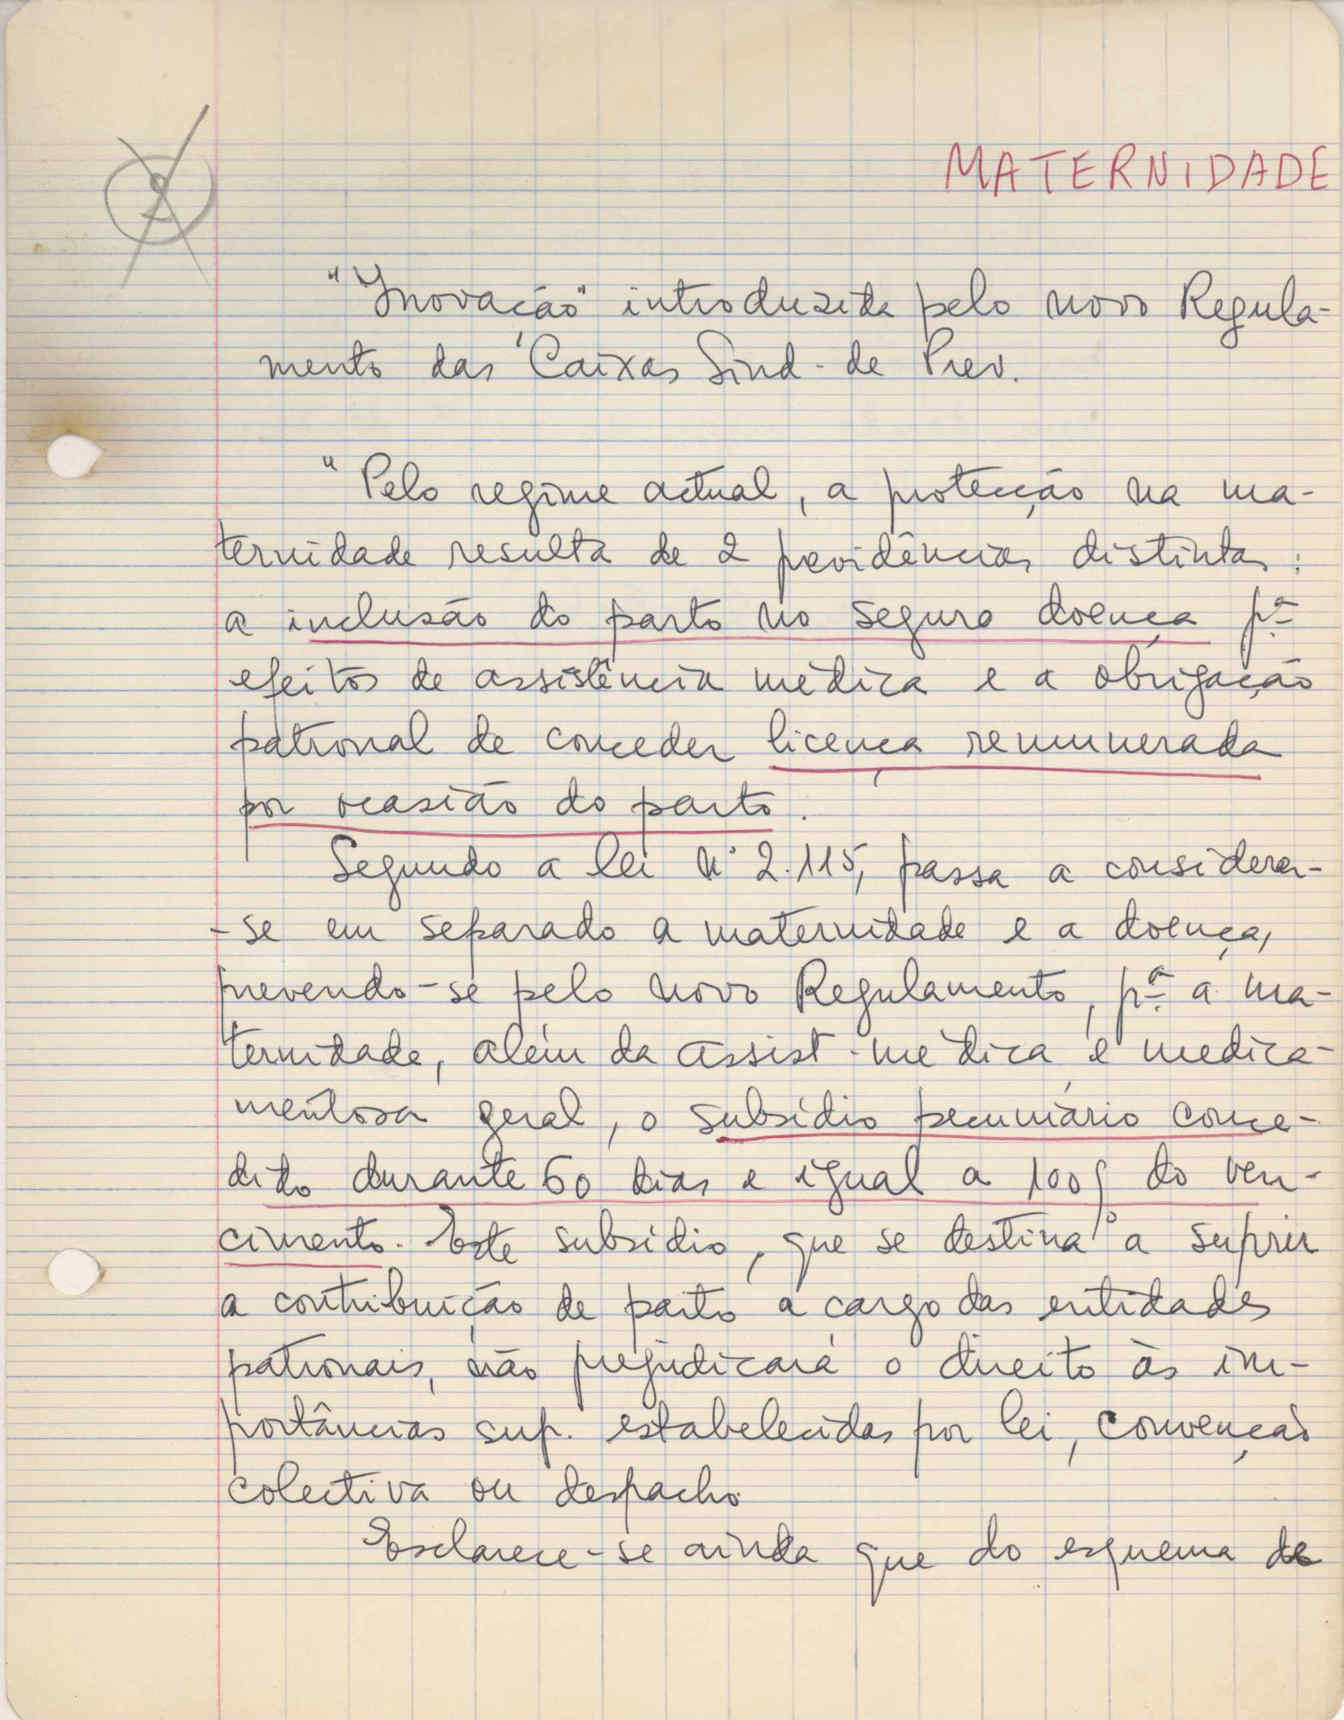 2
MATERNIDADE
"Inovação" introduzida pelo novo Regula-
mento das Caixas Sind. de Prev.
"Pelo regime actual, a protecção na ma-
ternidade resulta de 2 previdências distintas:
a inclusão do parto no seguro doença pª
efeitos de assistência médica e a obrigação
patronal de conceder licença remunerada
por ocasião do parto.
Segundo a lei nº 2.115, passa a considerar-
-se em separado a maternidade e a doença,
prevendo-se pelo novo Regulamento, pª a ma-
ternidade, além da assist. médica e medica-
mentosa geral, o subsídio pecuniário conce-
dido durante 60 dias e igual a 100% do ven-
cimento. Este subsídio, que se destina a suprir
a contribuição de parto a cargo das entidades
patronais, não prejudicará o direito às im-
portâncias sup. estabelecidas por lei, convenção
colectiva ou despacho
Esclarece-se ainda que do esquema de